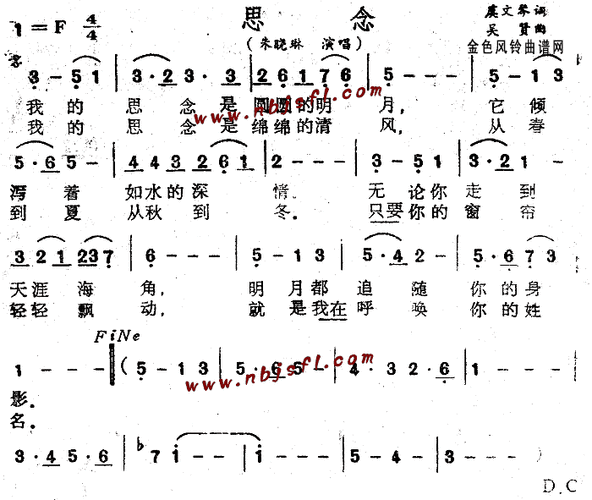 1=F 4/4
思 念
虞文琴 词
(朱晓琳 演唱)
吴 贤 曲
金色风铃曲谱网
3 - 5 1 | 3 · 2 3 · 3 | 2 6 1 7 6 | 5 - - - | 5 - 1 3
我的 思 念 是 圆圆的明 月, 它 倾
我的 思 念 是 绵绵的清 风, 从 春
www.nbjsfl.com
5 · 6 5 - | 4 4 3 2 6 1 | 2 - - - | 3 - 5 1 | 3 · 2 1 -
泻 着 如水的深 情。 无 论你 走 到
到 夏 从秋到 冬。 只要你的 窗 帘
3 2 1 2 3 7 | 6 - - - | 5 - 1 3 | 5 · 4 2 - | 5 · 6 7 3
天涯 海 角, 明 月都 追 随 你 的身
轻轻 飘 动, 就 是我在呼 唤 你 的姓
FiNe
1 - - ( 5 - 1 3 | 5 · 6 5 - | 4 · 3 2 · 6 | 1 - -
www.nbjsfl.com
影。
名。
3 · 4 5 · 6 | ♭7 i - - | i - - - | 5 - 4 - | 3 - - )
D.C